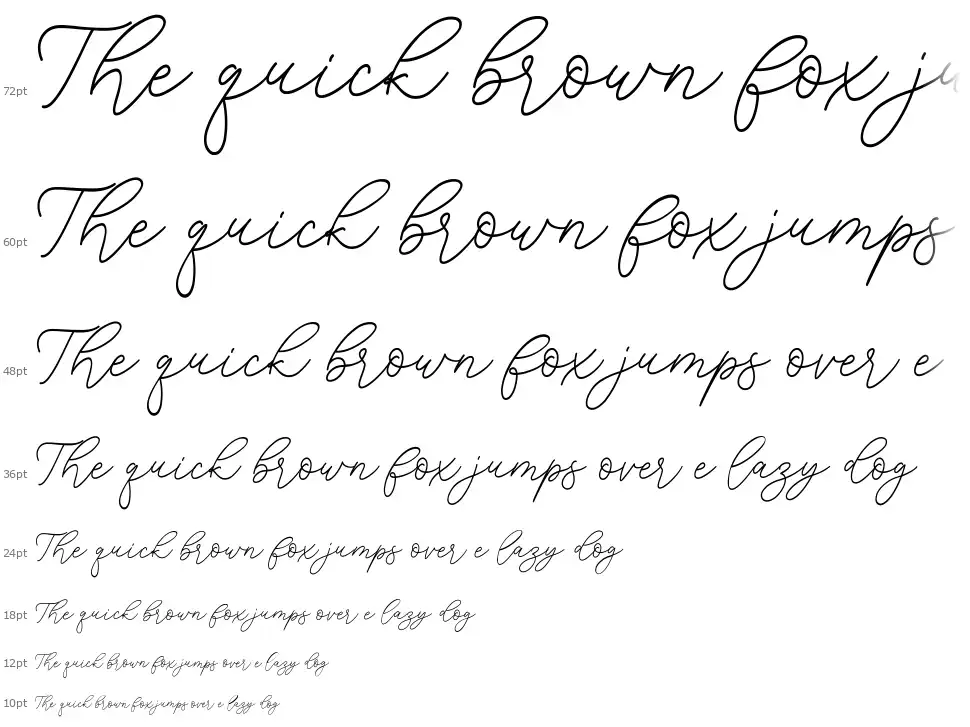 72pt The quick brown fox ju
60pt The quick brown fox jumps
48pt The quick brown fox jumps over e
36pt The quick brown fox jumps over e lazy dog
24pt The quick brown fox jumps over e lazy dog
18pt The quick brown fox jumps over e lazy dog
12pt The quick brown fox jumps over e lazy dog
10pt The quick brown fox jumps over e lazy dog